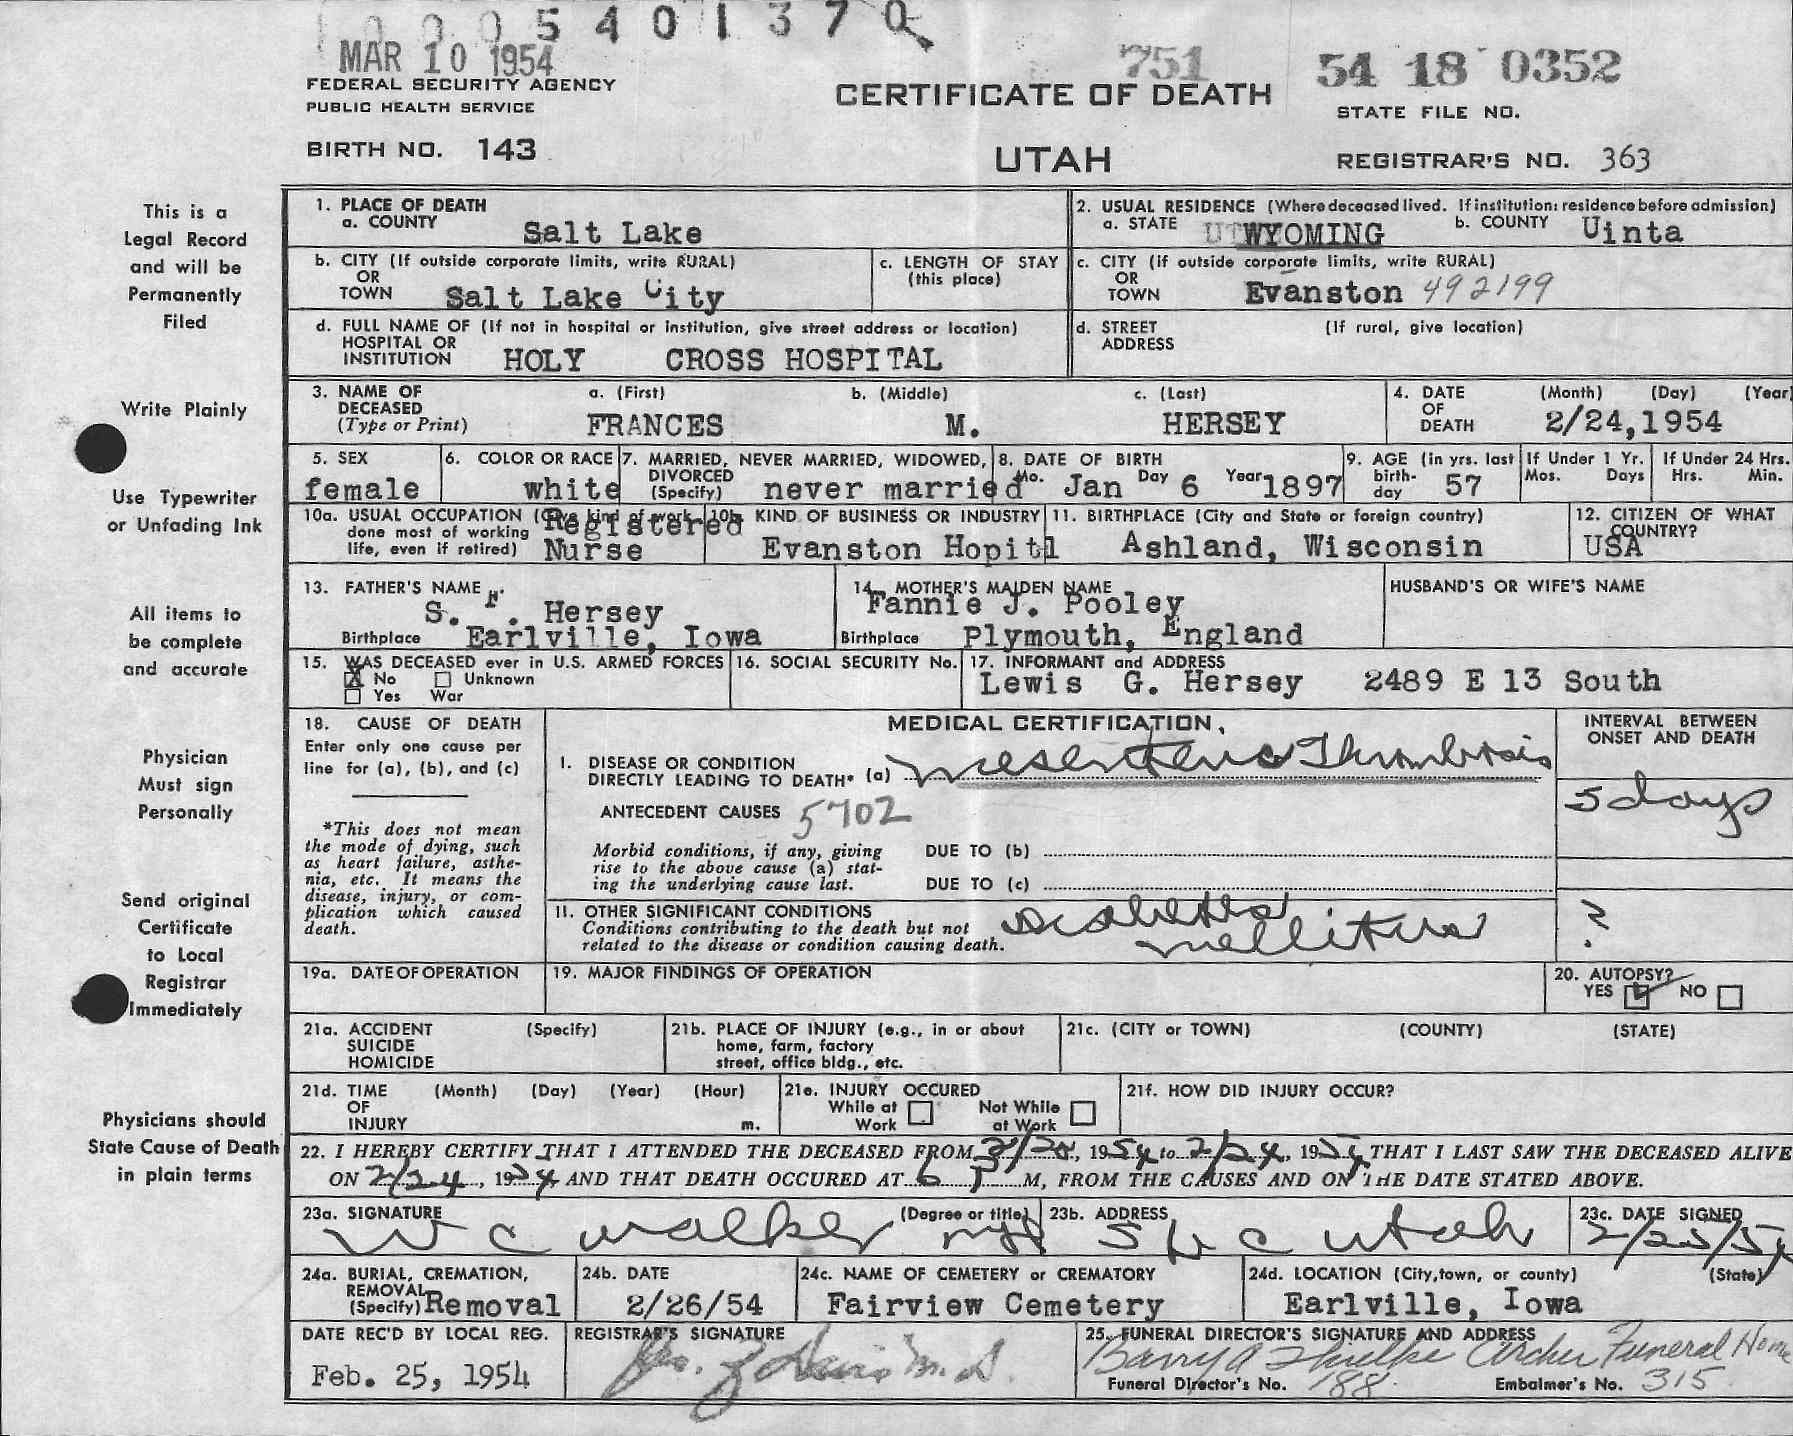 0 0 0 5 4 0 1 3 7 0
MAR 10 1954
751
54 18 0352
FEDERAL SECURITY AGENCY
PUBLIC HEALTH SERVICE
CERTIFICATE OF DEATH
STATE FILE NO.
BIRTH NO. 143
UTAH
REGISTRAR'S NO. 363
This is a
Legal Record
and will be
Permanently
Filed
Write Plainly
Use Typewriter
or Unfading Ink
All items to
be complete
and accurate
Physician
Must sign
Personally
Send original
Certificate
to Local
Registrar
Immediately
Physicians should
State Cause of Death
in plain terms
1. PLACE OF DEATH
a. COUNTY Salt Lake
2. USUAL RESIDENCE (Where deceased lived. If institution: residence before admission)
a. STATE WYOMING b. COUNTY Uinta
b. CITY (If outside corporate limits, write RURAL)
OR
TOWN Salt Lake City
c. LENGTH OF STAY
(this place)
c. CITY (If outside corporate limits, write RURAL)
OR
TOWN Evanston 492199
d. FULL NAME OF (If not in hospital or institution, give street address or location)
HOSPITAL OR
INSTITUTION HOLY CROSS HOSPITAL
d. STREET (If rural, give location)
ADDRESS
3. NAME OF DECEASED (Type or Print)
a. (First) b. (Middle) c. (Last)
FRANCES M. HERSEY
4. DATE OF DEATH (Month) (Day) (Year)
2/24,1954
5. SEX
female
6. COLOR OR RACE
white
7. MARRIED, NEVER MARRIED, WIDOWED,
DIVORCED
(Specify) never married
8. DATE OF BIRTH
Mo. Jan Day 6 Year 1897
9. AGE (in yrs. last
birth-
day 57
If Under 1 Yr.
Mos. Days
If Under 24 Hrs.
Hrs. Min.
10a. USUAL OCCUPATION (Give kind of work
done most of working
life, even if retired) Registered
Nurse
10b. KIND OF BUSINESS OR INDUSTRY
Evanston Hopitl
11. BIRTHPLACE (City and State or foreign country)
Ashland, Wisconsin
12. CITIZEN OF WHAT
COUNTRY?
USA
13. FATHER'S NAME
S. F. Hersey
Birthplace Earlville, Iowa
14. MOTHER'S MAIDEN NAME
Fannie J. Pooley
Birthplace Plymouth, England
HUSBAND'S OR WIFE'S NAME
15. WAS DECEASED ever in U.S. ARMED FORCES
X No Unknown
Yes War
16. SOCIAL SECURITY No.
17. INFORMANT and ADDRESS
Lewis G. Hersey 2489 E 13 South
18. CAUSE OF DEATH
Enter only one cause per
line for (a), (b), and (c)
*This does not mean
the mode of dying, such
as heart failure, asthe-
nia, etc. It means the
disease, injury, or com-
plication which caused
death.
MEDICAL CERTIFICATION
I. DISEASE OR CONDITION
DIRECTLY LEADING TO DEATH* (a) Mesenteric Thrombosis
ANTECEDENT CAUSES 5702
Morbid conditions, if any, giving
rise to the above cause (a) stat-
ing the underlying cause last.
DUE TO (b)
DUE TO (c)
II. OTHER SIGNIFICANT CONDITIONS
Conditions contributing to the death but not
related to the disease or condition causing death.
Diabetes
mellitus
INTERVAL BETWEEN
ONSET AND DEATH
5 days
?
19a. DATE OF OPERATION
19. MAJOR FINDINGS OF OPERATION
20. AUTOPSY?
YES NO
21a. ACCIDENT (Specify)
SUICIDE
HOMICIDE
21b. PLACE OF INJURY (e.g., in or about
home, farm, factory
street, office bldg., etc.
21c. (CITY or TOWN) (COUNTY) (STATE)
21d. TIME (Month) (Day) (Year) (Hour)
OF
INJURY m.
21e. INJURY OCCURED
While at Work Not While at Work
21f. HOW DID INJURY OCCUR?
22. I HEREBY CERTIFY THAT I ATTENDED THE DECEASED FROM 1954 to 2/24, 1954 THAT I LAST SAW THE DECEASED ALIVE
ON 2/24, 1954 AND THAT DEATH OCCURED AT 6 P M, FROM THE CAUSES AND ON THE DATE STATED ABOVE.
23a. SIGNATURE (Degree or title)
W C Walker MD
23b. ADDRESS
S L C Utah
23c. DATE SIGNED
2/25/54
24a. BURIAL, CREMATION,
REMOVAL
(Specify) Removal
24b. DATE
2/26/54
24c. NAME OF CEMETERY or CREMATORY
Fairview Cemetery
24d. LOCATION (City, town, or county) (State)
Earlville, Iowa
DATE REC'D BY LOCAL REG.
Feb. 25, 1954
REGISTRAR'S SIGNATURE
Davis M.D.
25. FUNERAL DIRECTOR'S SIGNATURE AND ADDRESS
Barry A Archer Funeral Home
Funeral Director's No. 188 Embalmer's No. 315